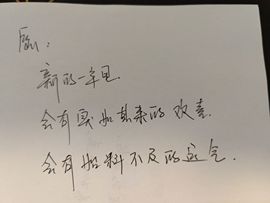 愿：
新的一年里
会有突如其来的欢喜.
会有始料不及的运气.